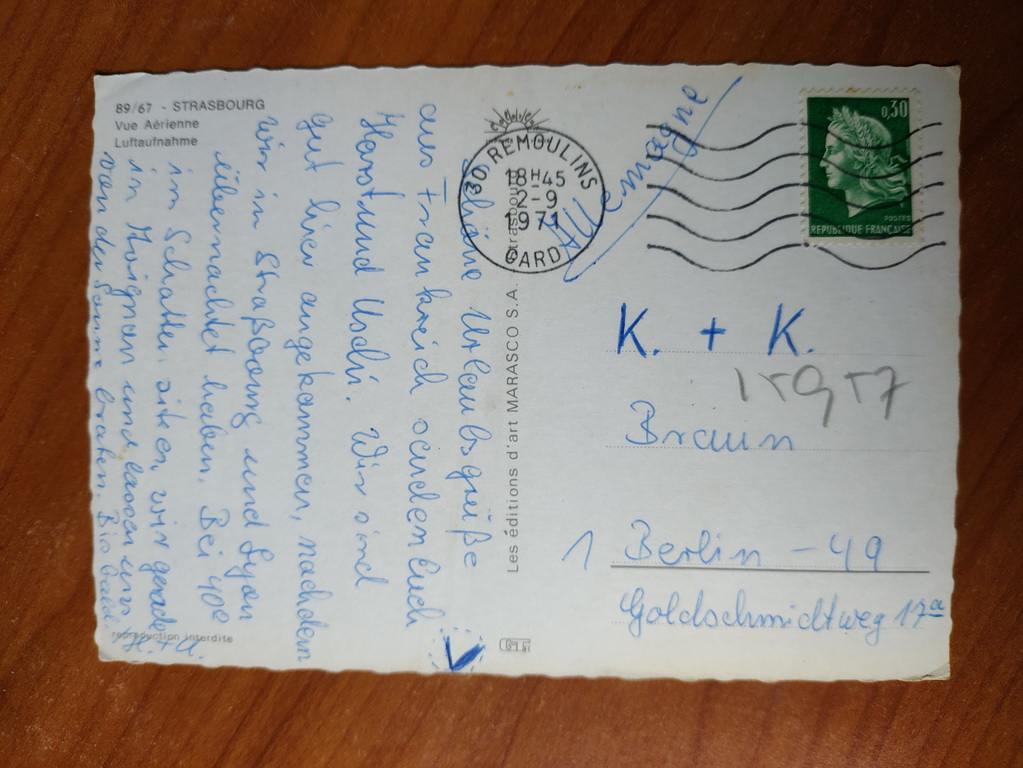 89/67 - STRASBOURG
Vue Aérienne
Luftaufnahme
Schöne Urlaubsgrüße
aus Frankreich senden Euch
Horst und Uschi. Wir sind
gut hier angekommen, nachdem
wir in Straßburg und Lyon
übernachtet haben. Bei 40°
im Schatten sitzen wir gerade
in Avignon und lassen uns
von der Sonne braten. Bis bald
H. + U.
reproduction interdite
Les éditions d'art MARASCO S.A. Strasbourg
30 REMOULINS
18H-45
2-9
1971
GARD
Allemagne
0,30
POSTES
REPUBLIQUE FRANCAISE
K. + K.
15957
Braun
1 Berlin - 49
Goldschmidtweg 17a